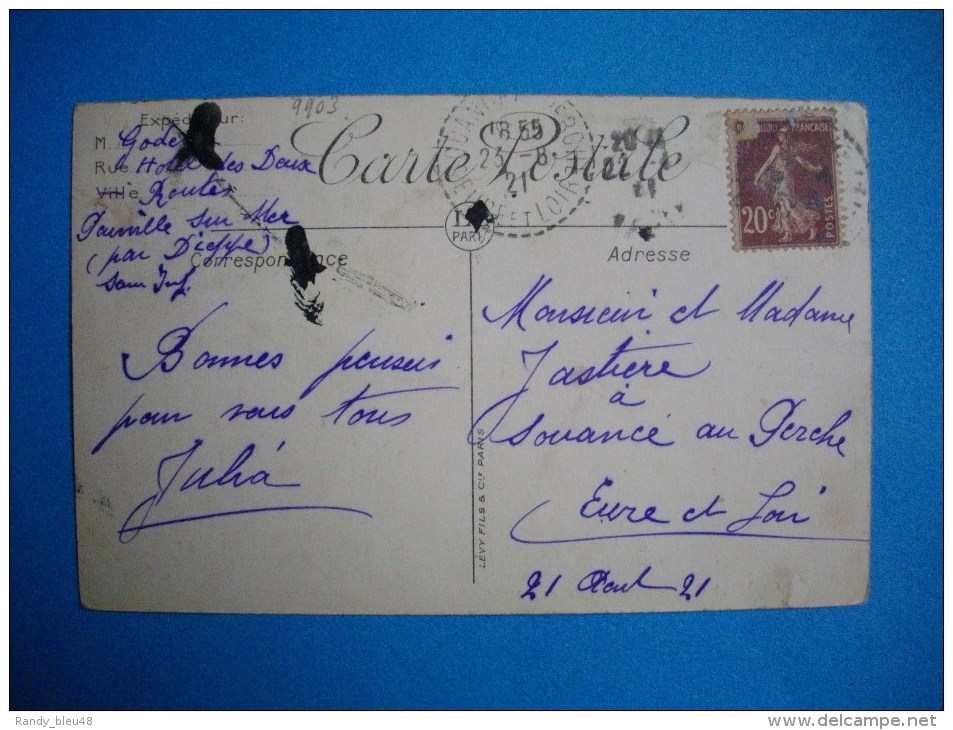 9903.
Expéditeur:
M. Gode
Rue Hotel des Deux
Ville Routes
Pourville sur Mer
(par Dieppe)
Sein Inf.
Carte Postale
SOUANCÉ AU PERCHE
18 55
23 - 8
21
EURE ET LOIR
PARIS
RÉPUBLIQUE FRANÇAISE
20c
POSTES
Correspondance
Adresse
Bonnes pensées
pour vous tous
Julia
LÉVY FILS & Cie PARIS
Monsieur et Madame
Jastière
à
Souancé au Perche
Eure et Loir
21 Aout 21
Randy_bleu48
www.delcampe.net